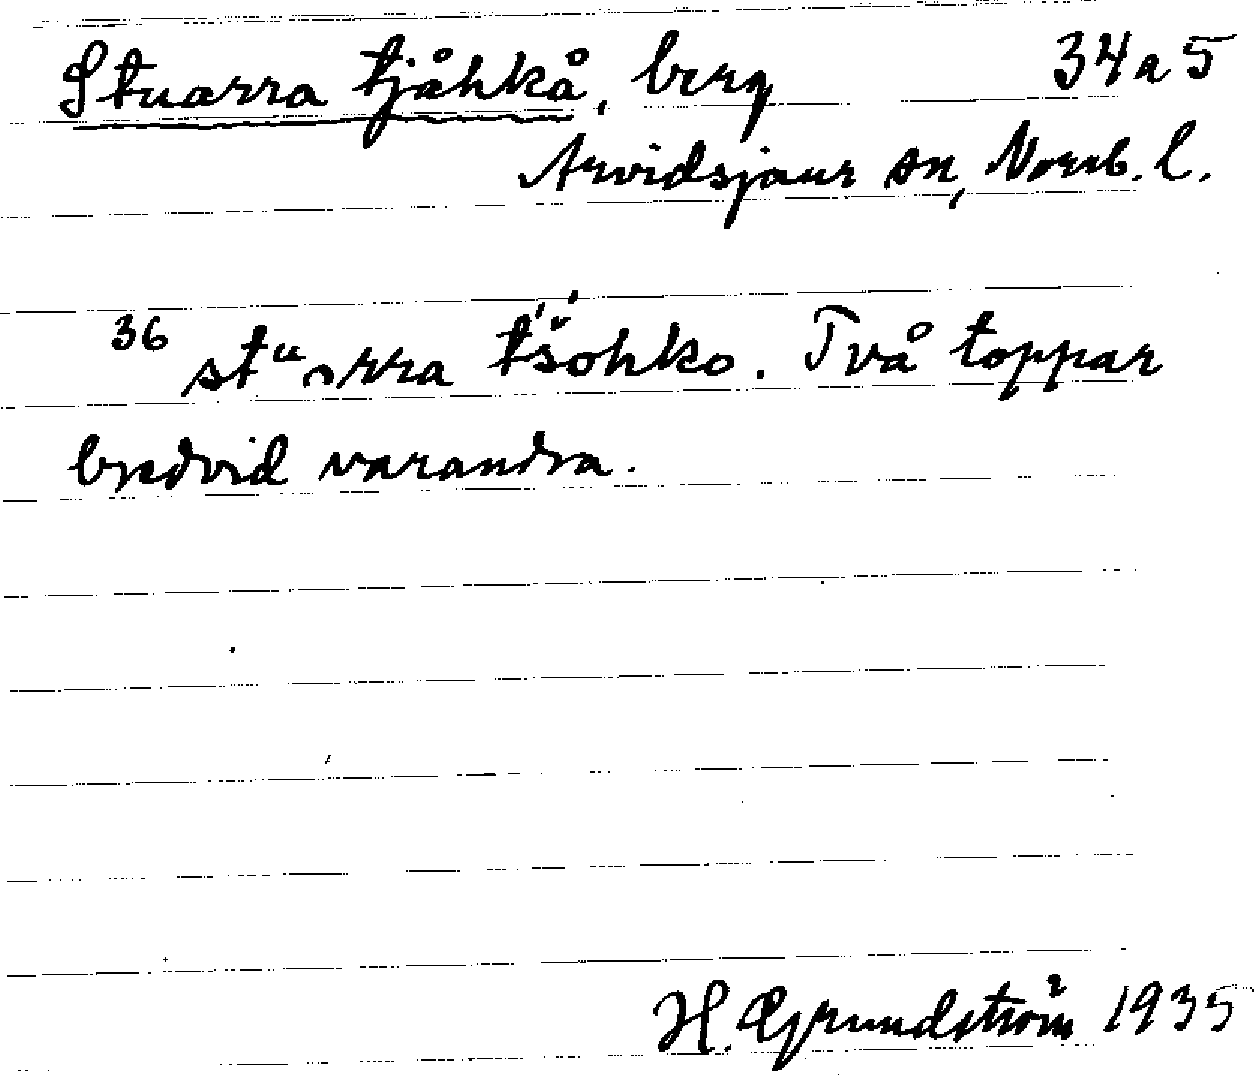 Stuarra tjåhkå, berg 34 a 5
Arvidsjaur sn, Norrb. l.
36 stᵘorra t́š́ohko. Två toppar
bredvid varandra.
H. Grundström 1935